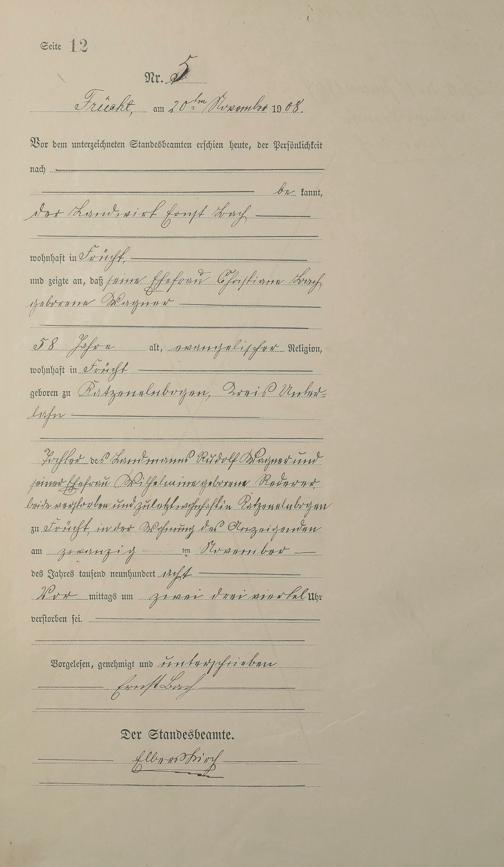 Seite 12
Nr. 5
Frücht, am 20ten November 1908.
Vor dem unterzeichneten Standesbeamten erschien heute, der Persönlichkeit
nach
be kannt,
der Landwirt Ernst Bach
wohnhaft in Frücht,
und zeigte an, daß seine Ehefrau Christiane Bach
geborene Wagner
58 Jahre alt, evangelischer Religion,
wohnhaft in Frücht
geboren zu Katzenelnbogen, Kreis Unter-
lahn
Tochter des Landmanns Rudolf Wagner und
seiner Ehefrau Wilhelmine geborene Rederer
beide verstorben und zuletzt wohnhaft in Katzenelnbogen
zu Frücht, in der Wohnung des Anzeigenden
am zwanzig im November
des Jahres tausend neunhundert acht
Vor mittags um zwei drei viertel Uhr
verstorben sei.
Vorgelesen, genehmigt und unterschrieben
Ernst Bach
Der Standesbeamte.
Elberskirch